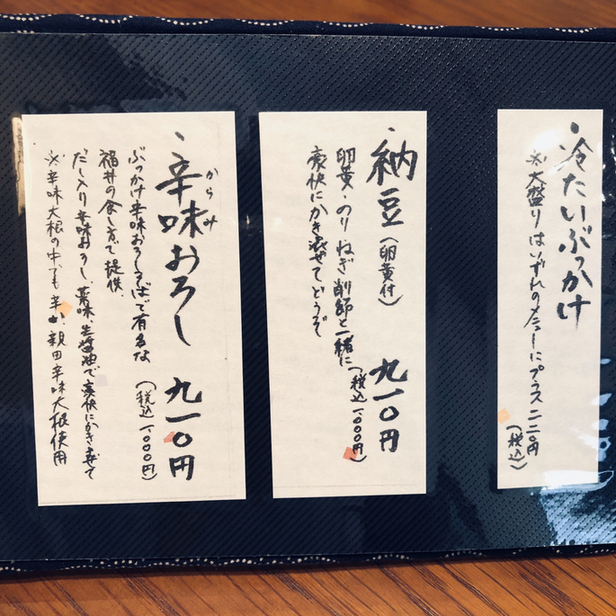 ・冷たいぶっかけ
※大盛りはいずれのメニューにプラス二二〇円
(税込)
・納豆(卵黄付)九一〇円
(税込一、〇〇〇円)
卵黄・のり ねぎ 削節と一緒に
豪快にかき混ぜてどうぞ
からみ
・辛味おろし 九一〇円
(税込一、〇〇〇円)
ぶっかけ辛味おろしそばで有名な
福井の食べ方で提供、
だし入り辛味おろし、薬味、生醤油で豪快にかきまぜて
※辛味大根の中でも辛い、親田辛味大根使用